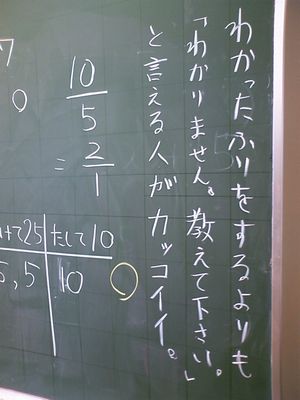 わかったふりをするよりも
「わかりません。教えて下さい。」
と言える人がカッコイイ。
10
5
=
2
1
けて25
たして10
5, 5
10